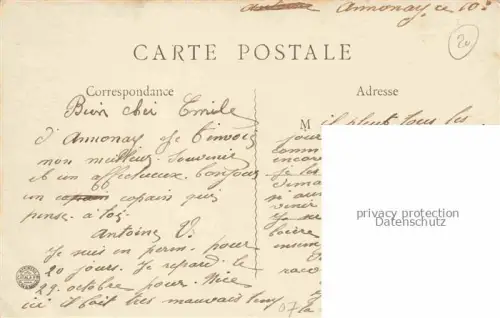 Annonay ce 10
20
CARTE POSTALE
Correspondance
Adresse
Bien cher Emile
d'Annonay je t'envois
mon meilleur souvenir
et un affectueux bonjour
un copain copain qui
pense à toi
Antoine V.
Je suis en perm. pour
20 jours. Je repard. le
29. octobre pour. Nice
ici il fait tres mauvais temp
07
M
il pleut tous les
jour
comm
encore
je los
dima
si au
venir
Je
boire
ensem
racc
la
privacy protection
Datenschutz